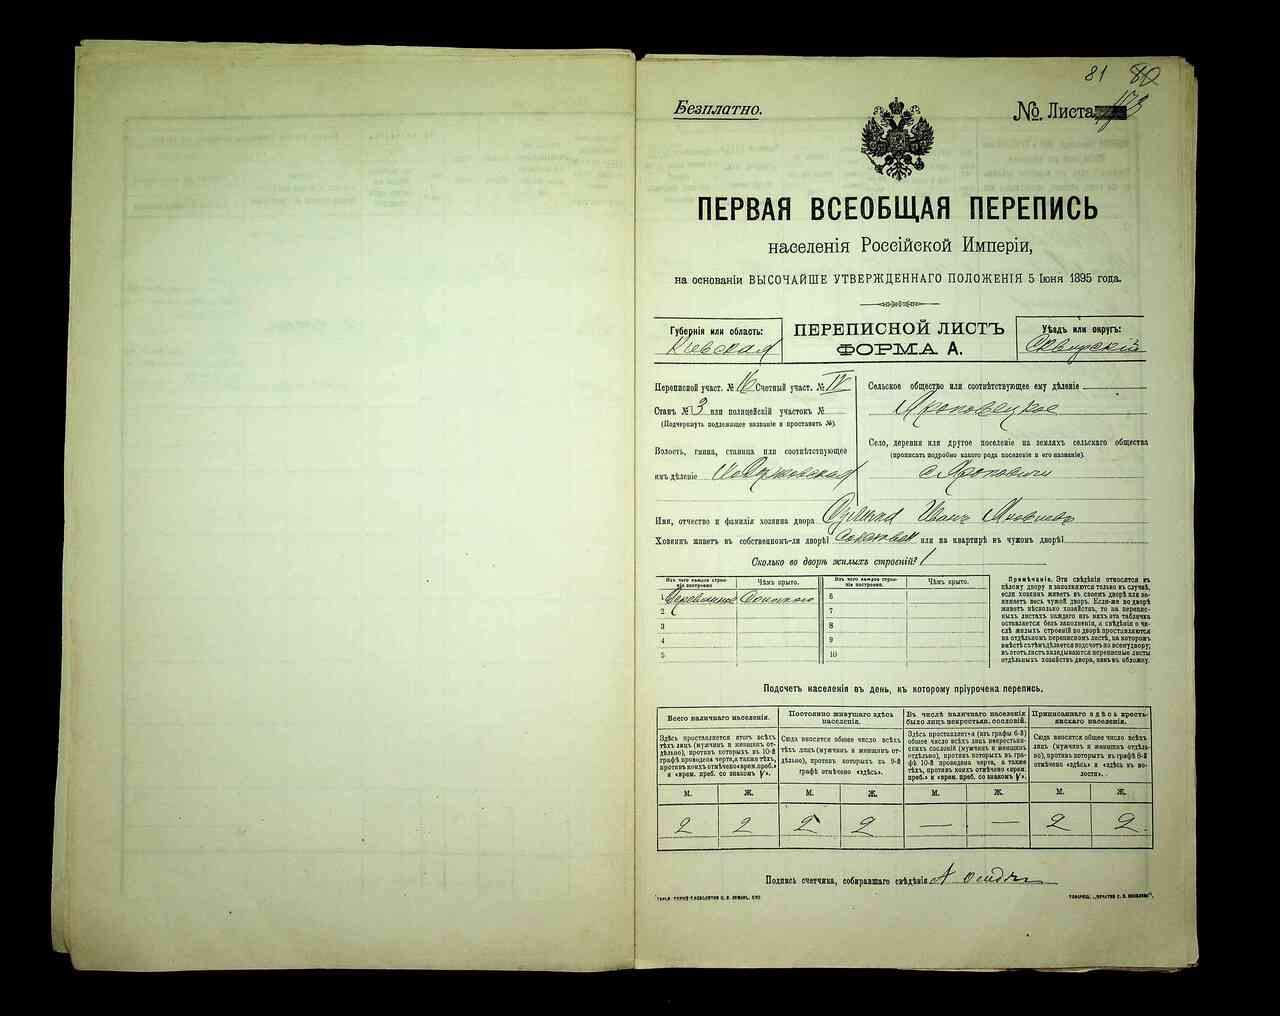 81 80
Безплатно.
№. Листа 173
ПЕРВАЯ ВСЕОБЩАЯ ПЕРЕПИСЬ
населенія Россійской Имперіи,
на основаніи ВЫСОЧАЙШЕ УТВЕРЖДЕННАГО ПОЛОЖЕНІЯ 5 Іюня 1895 года.
Губернія или область:
Кіевская
ПЕРЕПИСНОЙ ЛИСТЪ
ФОРМА А.
Уѣздъ или округъ:
Сквирскій
Переписной участ. № 16 Счетный участ. № IV
Станъ № 3 или полицейскій участокъ №
(Подчеркнуть подлежащее названіе и проставить №).
Волость, гмина, станица или соотвѣтствующее
имъ дѣленіе
Сельское общество или соотвѣтствующее ему дѣленіе
Яроповецкое
Село, деревня или другое поселеніе на земляхъ сельскаго общества
(прописать подробно какого рода поселеніе и его названіе).
с. Яроповичи
Имя, отчество и фамилія хозяина двора Иванъ Яковлевъ
Хозяинъ живетъ въ собственномъ-ли дворѣ? или на квартирѣ въ чужомъ дворѣ?
Сколько во дворѣ жилыхъ строеній? 1
Изъ чего каждое строе-
ніе построено
Чѣмъ крыто.
Изъ чего каждое строе-
ніе построено.
Чѣмъ крыто.
1 Деревянное Соломою 6
2 7
3 8
4 9
5. 10
Примѣчаніе. Эти свѣдѣнія относятся къ
цѣлому двору и заполняются только въ случаѣ,
если хозяинъ живетъ въ своемъ дворѣ или за-
нимаетъ весь чужой дворъ. Если-же во дворѣ
живетъ нѣсколько хозяйствъ, то на перепис-
ныхъ листахъ каждаго изъ нихъ эта табличка
оставляется безъ заполненія, а свѣдѣнія о чи-
слѣ жилыхъ строеній во дворѣ проставляются
на отдѣльномъ переписномъ листѣ, на которомъ
вмѣстѣ съ тѣмъ дѣлается подсчетъ по всему двору;
въ этотъ листъ вкладываются переписные листы
отдѣльныхъ хозяйствъ двора, какъ въ обложку.
Подсчетъ населенія въ день, къ которому пріурочена перепись.
Всего наличнаго населенія.
Здѣсь проставляется итогъ всѣхъ
тѣхъ лицъ (мужчинъ и женщинъ от-
дѣльно), противъ которыхъ въ 10-й
графѣ проведена черта, а также тѣхъ,
противъ коихъ отмѣчено «врем. преб.»
и «врем. преб. со знакомъ V».
Постоянно живущаго здѣсь
населенія.
Сюда вносятся общее число всѣхъ
тѣхъ лицъ (мужчинъ и женщинъ от-
дѣльно), противъ которыхъ въ 9-й
графѣ отмѣчено «здѣсь».
Въ числѣ наличнаго населенія
было лицъ некрестьян. сословій.
Здѣсь проставляется (изъ графы 6-й)
общее число всѣхъ лицъ некрестьян-
скихъ сословій (мужчинъ и женщинъ
отдѣльно), противъ которыхъ въ гра-
фѣ 10-й проведена черта, а также
тѣхъ, противъ коихъ отмѣчено «врем.
преб.» и «врем. преб. со знакомъ V».
Приписаннаго здѣсь кресть-
янскаго населенія.
Сюда вносятся общее число всѣхъ
лицъ (мужчинъ и женщинъ отдѣль-
но), противъ которыхъ въ графѣ 8-й
отмѣчено «здѣсь» и «здѣсь въ во-
лости».
М. Ж. М. Ж. М. Ж. М. Ж.
2 2 2 2 — — 2 2
Подпись счетчика, собиравшаго свѣдѣнія